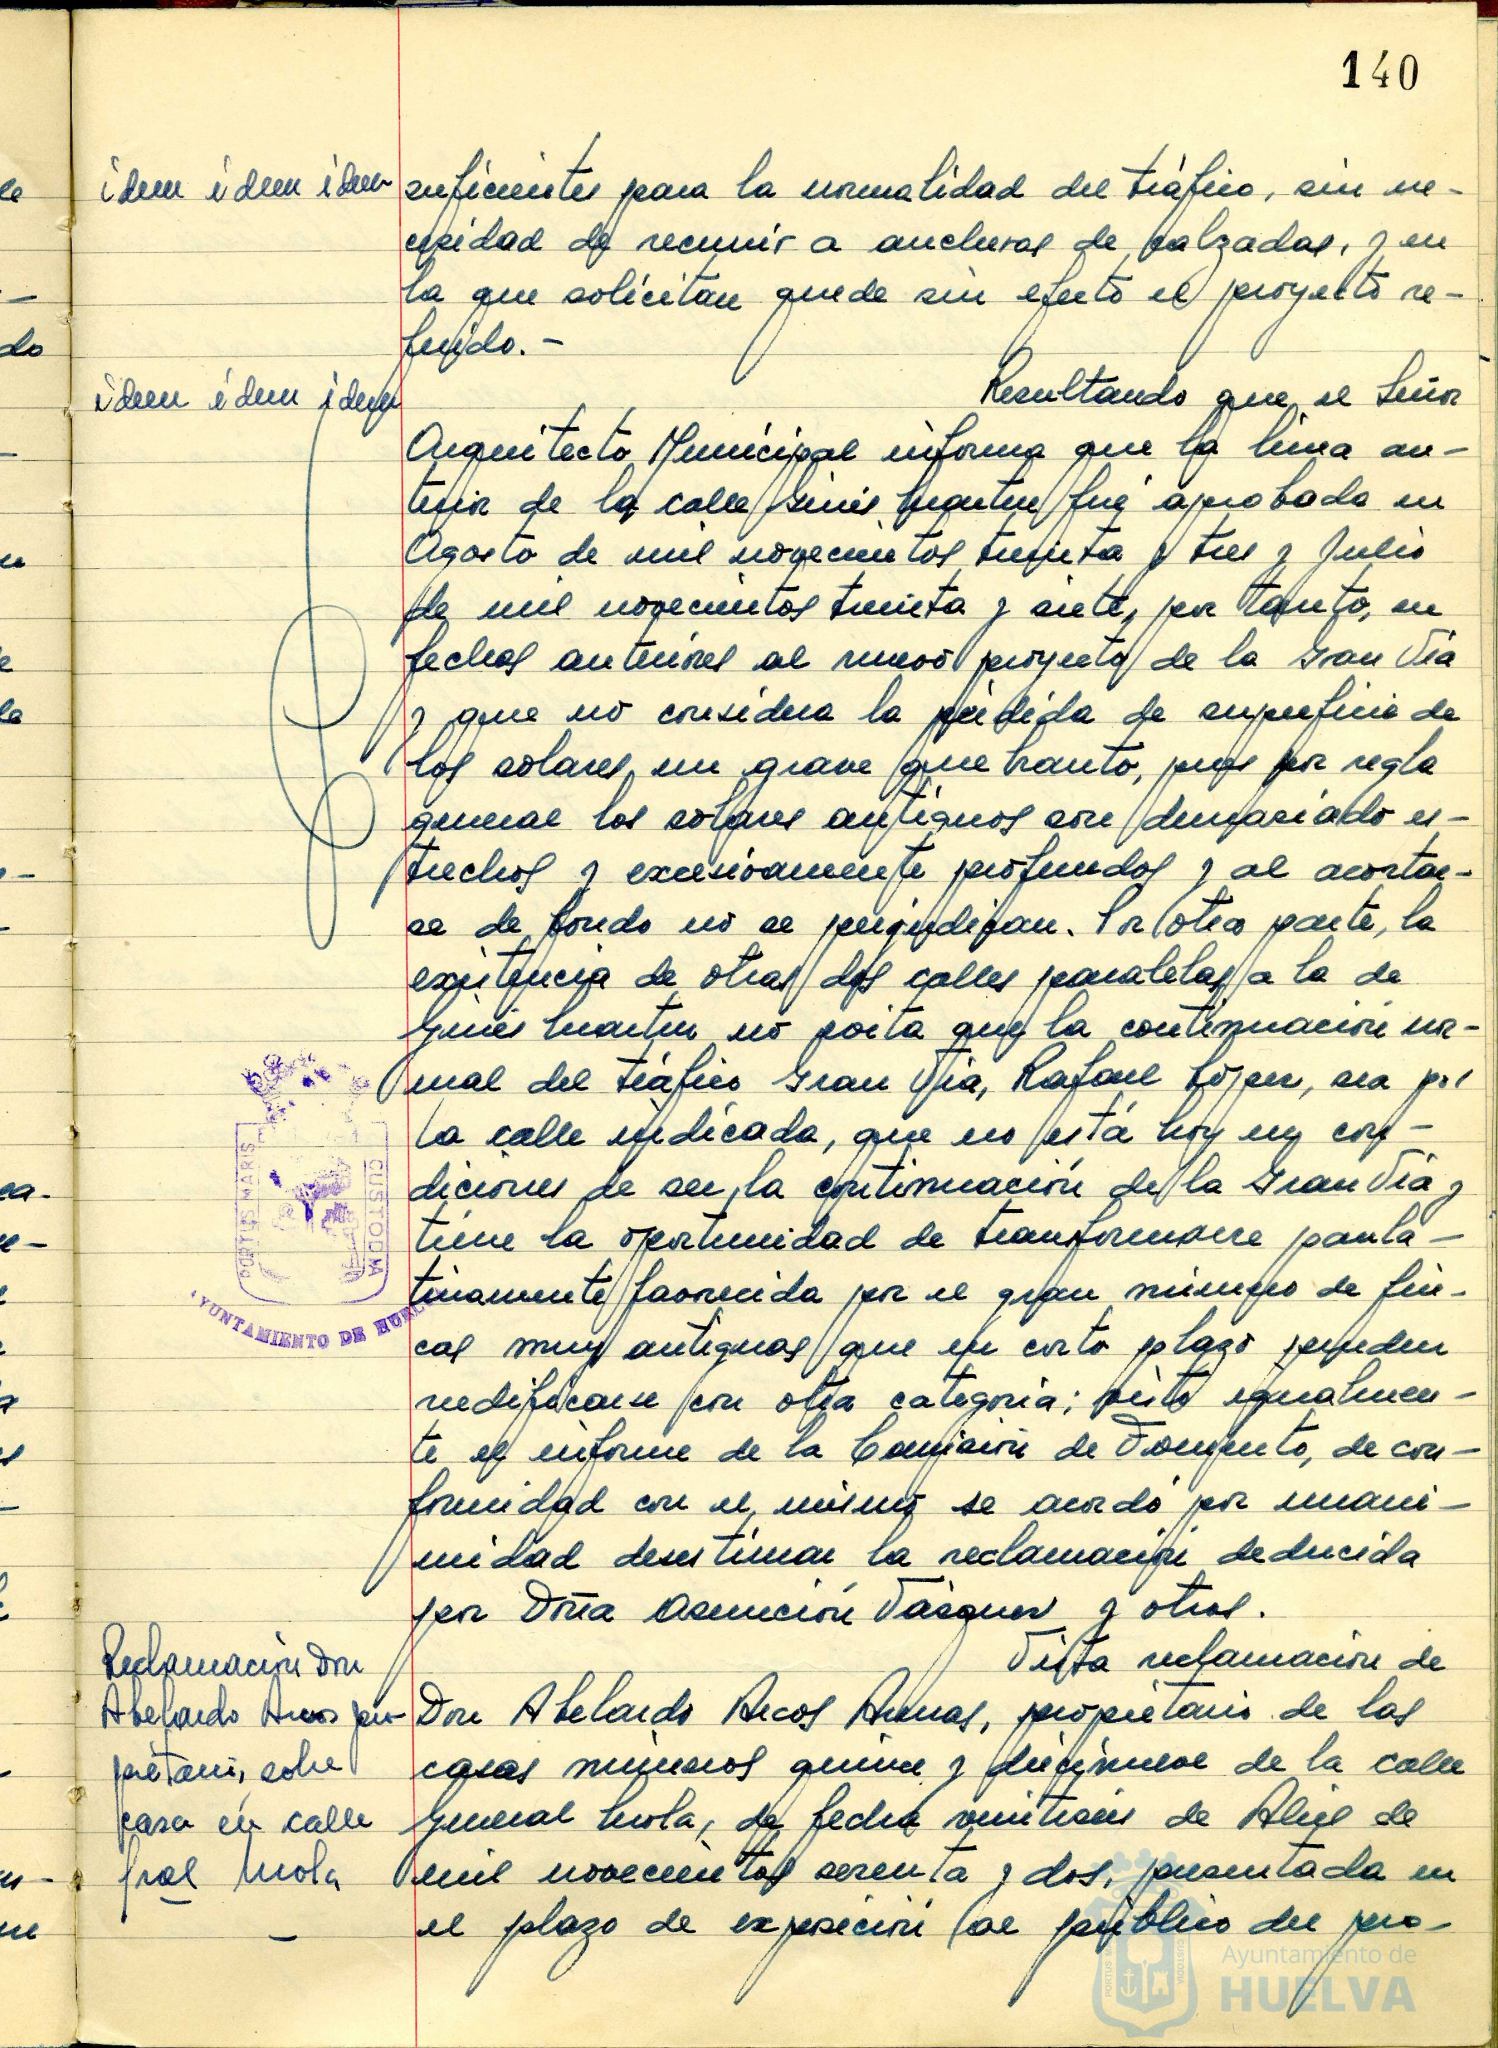 140
idem idem idem
suficientes para la normalidad del tráfico, sin ne-
cesidad de recurrir a anchuras de calzadas, y en
la que solicitan quede sin efecto el proyecto re-
ferido.-
idem idem idem
Resultando que el Señor
Arquitecto Municipal informa que la linea an-
terior de la calle Ginés Martín fué aprobada en
Agosto de mil novecientos treinta y tres y Julio
de mil novecientos treinta y siete, por tanto, en
fechas anteriores al nuevo proyecto de la Gran Vía
y que no considera la pérdida de superficie de
los solares, un grave quebranto, pues por regla
general los solares antiguos son demasiado es-
trechos y excesivamente profundos y al acortar-
se de fondo no se perjudican. Por otra parte, la
existencia de otras dos calles paralelas a la de
Ginés Martín no quita que la continuación nor-
mal del tráfico Gran Vía, Rafael López, sea por
la calle indicada, que no está hoy en con-
diciones de ser la continuación de la Gran Vía y
tiene la oportunidad de transformarse paula-
tinamente favorecida por el gran número de fin-
cas muy antiguas que en corto plazo pueden
reedificarse con otra categoría; visto igualmen-
te el informe de la Comisión de Fomento, de con-
formidad con el mismo se acordó por unani-
midad desestimar la reclamación deducida
por Doña Asunción Vázquez y otros.
PORTUS MARIS
CUSTODIA
AYUNTAMIENTO DE HUELVA
Reclamación Don
Abelardo Arcos pro-
pietario, sobre
casa en calle
Gral Mola
Vista reclamación de
Don Abelardo Arcos Arenas, propietario de las
casas números quince y diecinueve de la calle
General Mola, de fecha veintiseis de Abril de
mil novecientos sesenta y dos, presentada en
el plazo de exposición al público del pro-
Ayuntamiento de
HUELVA